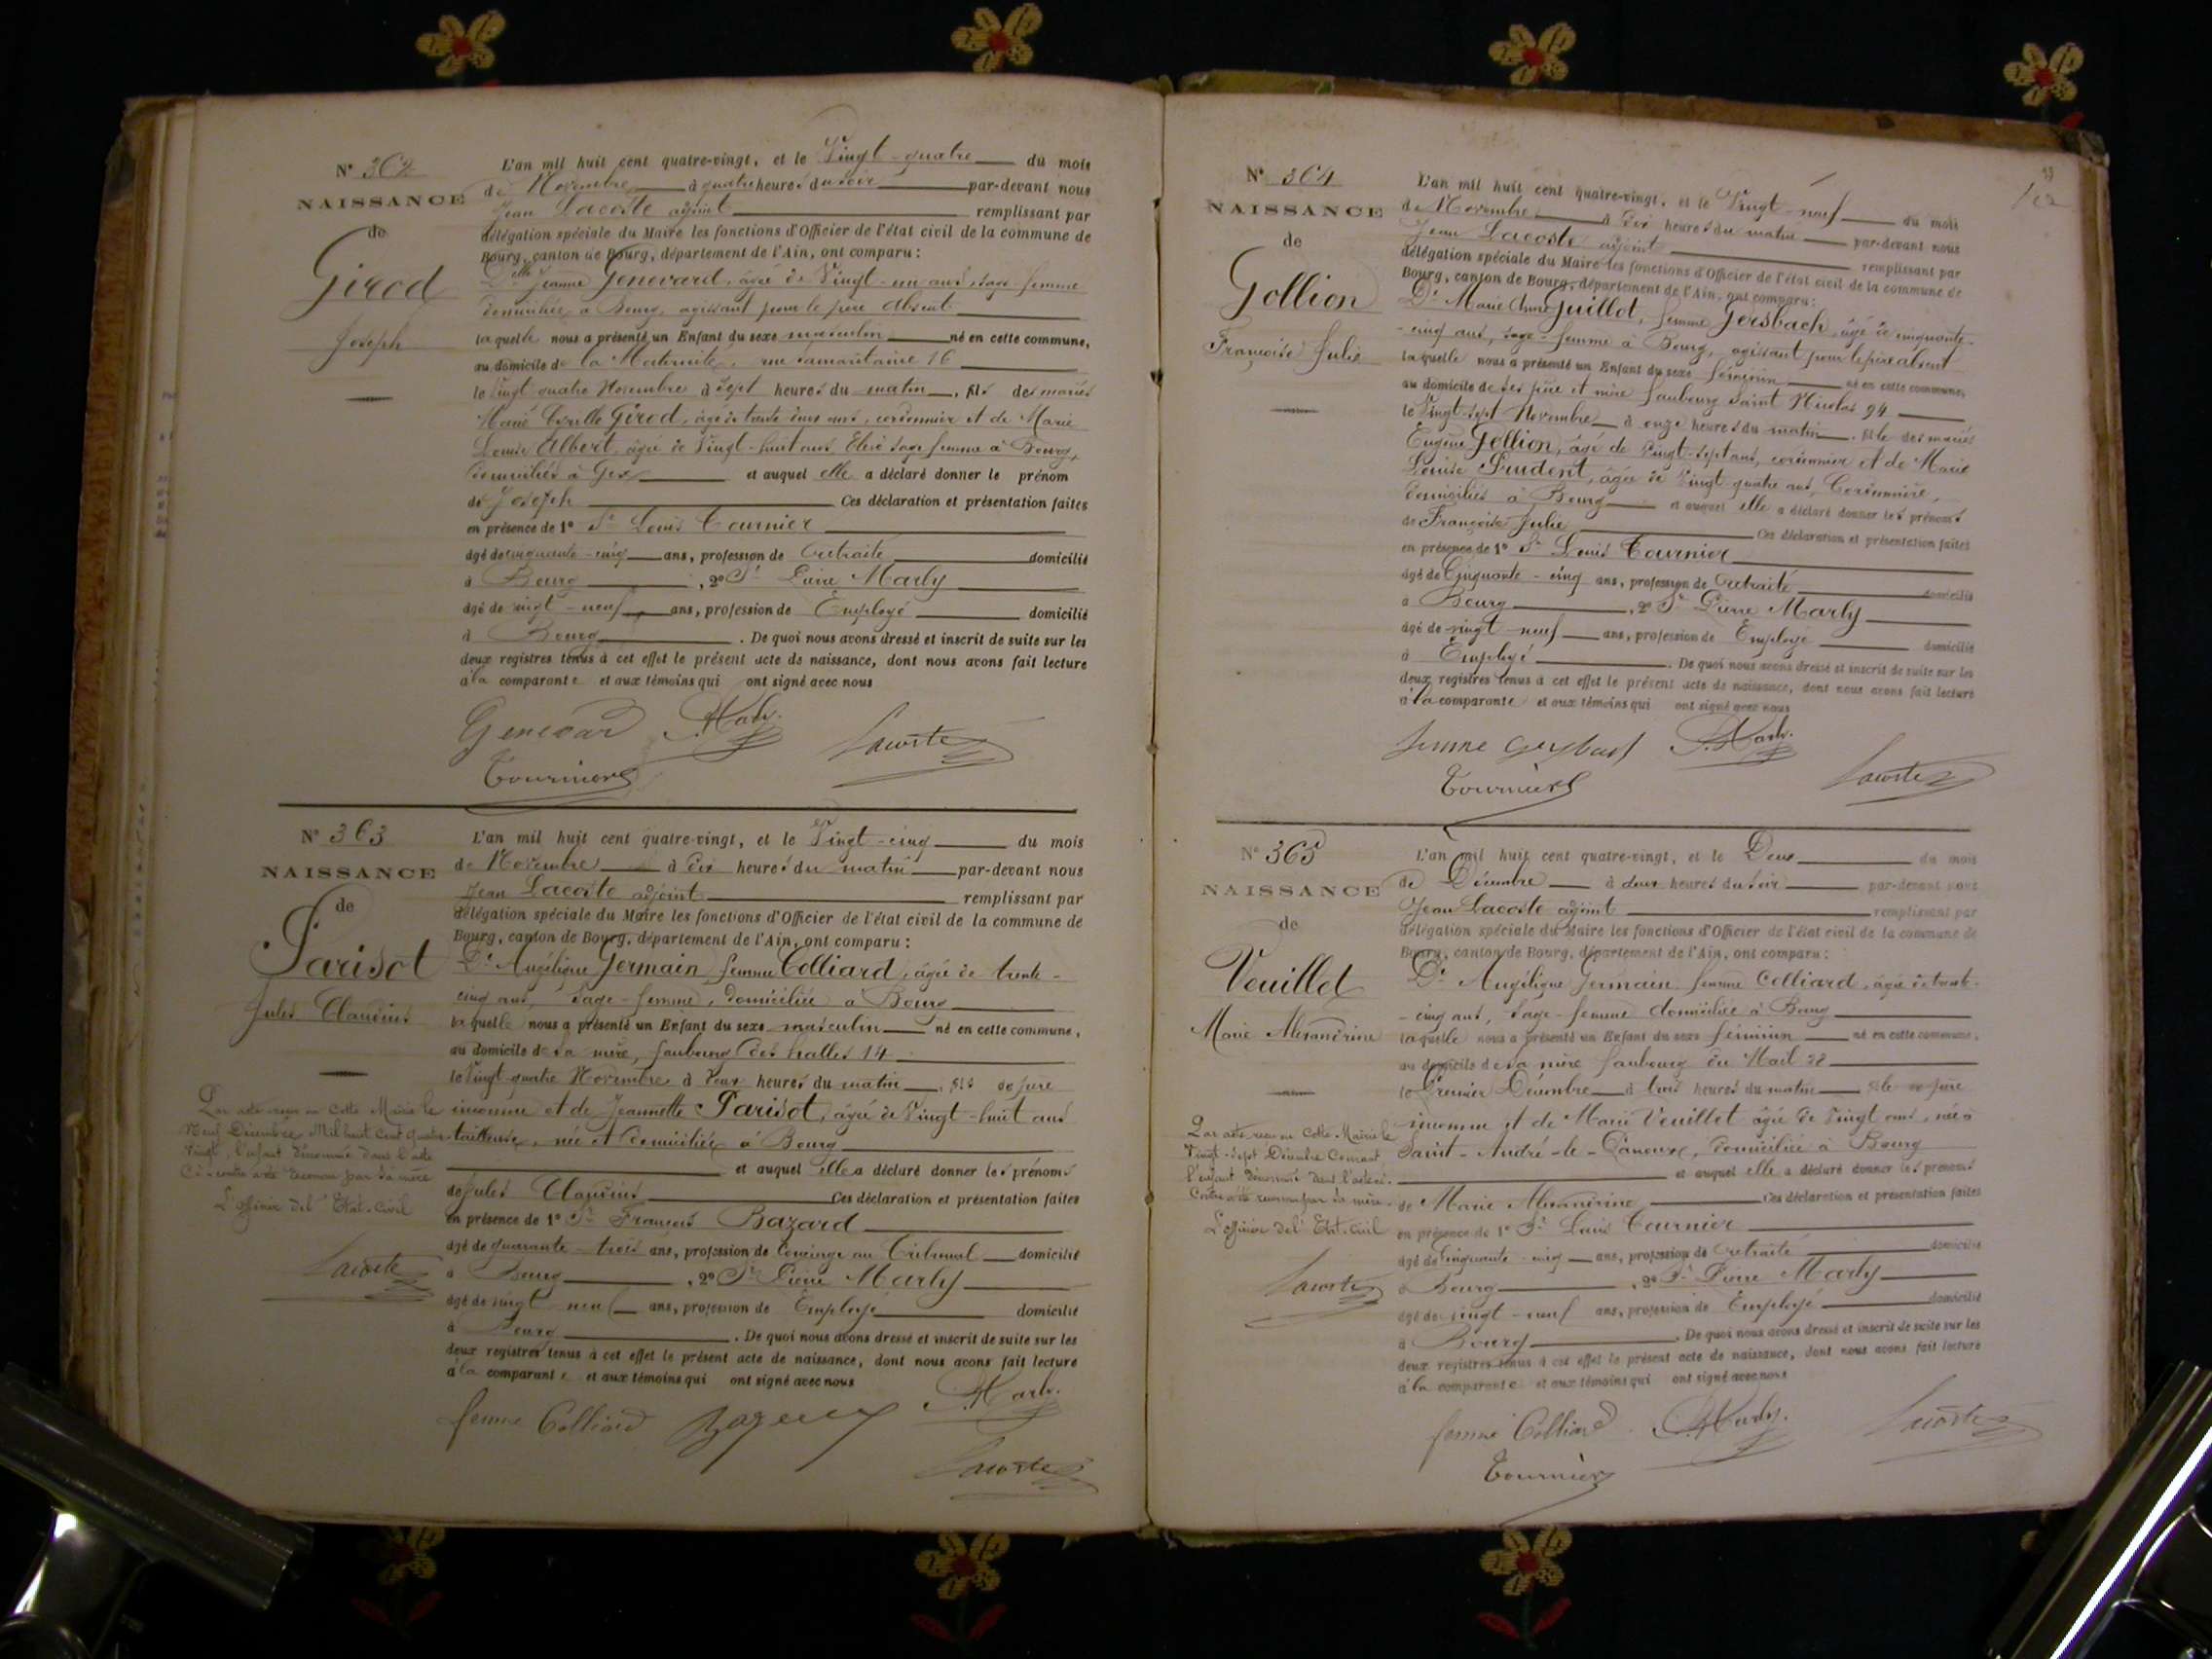 N° 362
NAISSANCE
de
Girod
Joseph
L'an mil huit cent quatre-vingt, et le Vingt-quatre du mois
de Novembre à quatre heures du soir par-devant nous
Jean Lacoste adjoint remplissant par
délégation spéciale du Maire les fonctions d'Officier de l'état civil de la commune de
Bourg, canton de Bourg, département de l'Ain, ont comparu :
Delle Jeanne Genevard, âgée de Vingt-un ans, sage-femme
domiciliée à Bourg, agissant pour le père absent
laquelle nous a présenté un Enfant du sexe masculin né en cette commune,
au domicile de la Maternité, rue Samaritaine 16
le Vingt quatre Novembre à Sept heures du matin, fils des mariés
Marie Cyrille Girod, âgé de trente deux ans, cordonnier et de Marie
Louise Albert, âgée de Vingt-huit ans, Elève sage femme à Bourg,
domiciliés à Gex et auquel elle a déclaré donner le prénom
de Joseph Ces déclaration et présentation faites
en présence de 1° Sr Louis Tournier
âgé de cinquante-cinq ans, profession de retraité domicilié
à Bourg, 2° Sr Pierre Marly
âgé de vingt-neuf ans, profession de Employé domicilié
à Bourg. De quoi nous avons dressé et inscrit de suite sur les
deux registres tenus à cet effet le présent acte de naissance, dont nous avons fait lecture
à la comparante et aux témoins qui ont signé avec nous
Genevard P. Marly
Tournier Lacoste
N° 363
NAISSANCE
de
Parisot
Jules Claudius
L'an mil huit cent quatre-vingt, et le Vingt-cinq du mois
de Novembre à dix heures du matin par-devant nous
Jean Lacoste adjoint remplissant par
délégation spéciale du Maire les fonctions d'Officier de l'état civil de la commune de
Bourg, canton de Bourg, département de l'Ain, ont comparu :
De Angélique Germain femme Colliard, âgée de trente-
cinq ans, Sage-femme, domiciliée à Bourg
laquelle nous a présenté un Enfant du sexe masculin né en cette commune,
au domicile de sa mère, faubourg des halles 14
le Vingt-quatre Novembre à deux heures du matin, fils de père
inconnu et de Jeannette Parisot, âgée de Vingt-huit ans
tailleuse, née et domiciliée à Bourg
et auquel elle a déclaré donner les prénoms
de Jules Claudius Ces déclaration et présentation faites
en présence de 1° Sr François Bazard
âgé de quarante-trois ans, profession de Concierge au Tribunal domicilié
à Bourg, 2° Sr Pierre Marly
âgé de vingt neuf ans, profession de Employé domicilié
à Bourg. De quoi nous avons dressé et inscrit de suite sur les
deux registres tenus à cet effet le présent acte de naissance, dont nous avons fait lecture
à la comparante et aux témoins qui ont signé avec nous
Par acte reçu en Cette Mairie le
Neuf Décembre Mil huit Cent quatre
Vingt, l'enfant dénommé dans l'acte
Ci-contre a été reconnu par sa mère
L'officier de l'Etat-civil
Lacoste
femme Colliard P. Marly
Lacoste
N° 364
NAISSANCE
de
Gollion
Françoise Julie
L'an mil huit cent quatre-vingt, et le Vingt-neuf du mois
de Novembre à dix heures du matin par-devant nous
Jean Lacoste adjoint remplissant par
délégation spéciale du Maire les fonctions d'Officier de l'état civil de la commune de
Bourg, canton de Bourg, département de l'Ain, ont comparu :
De Marie Anne Guillot, femme Gersbach, âgé de cinquante-
-cinq ans, sage-femme à Bourg, agissant pour le père absent
laquelle nous a présenté un Enfant du sexe féminin né en cette commune,
au domicile de ses père et mère faubourg Saint Nicolas 94
le Vingt-sept Novembre à onze heures du matin, fille des mariés
Eugène Gollion, âgé de Vingt-sept ans, cordonnier et de Marie
Louise Prudent, âgée de Vingt quatre ans, Cordonnière,
domiciliés à Bourg et auquel elle a déclaré donner les prénoms
de Françoise Julie Ces déclaration et présentation faites
en présence de 1° Sr Louis Tournier
âgé de Cinquante-cinq ans, profession de retraité domicilié
à Bourg, 2° Sr Pierre Marly
âgé de vingt-neuf ans, profession de Employé domicilié
à Employé. De quoi nous avons dressé et inscrit de suite sur les
deux registres tenus à cet effet le présent acte de naissance, dont nous avons fait lecture
à la comparante et aux témoins qui ont signé avec nous
femme Gersbach P. Marly
Tournier Lacoste
N° 365
NAISSANCE
de
Veuillet
Marie Alexandrine
L'an mil huit cent quatre-vingt, et le Deux du mois
de Décembre à deux heures du soir par-devant nous
Jean Lacoste adjoint remplissant par
délégation spéciale du Maire les fonctions d'Officier de l'état civil de la commune de
Bourg, canton de Bourg, département de l'Ain, ont comparu :
De Angélique Germain femme Colliard, âgée de trente-
-cinq ans, Sage-femme domiciliée à Bourg
laquelle nous a présenté un Enfant du sexe féminin né en cette commune,
au domicile de sa mère faubourg du Mail
le Premier Décembre à trois heures du matin fille de père
inconnu et de Marie Veuillet âgée de Vingt ans, née à
Saint-André-le-Panoux, domiciliée à Bourg
et auquel elle a déclaré donner les prénoms
de Marie Alexandrine Ces déclaration et présentation faites
en présence de 1° Sr Louis Tournier
âgé de Cinquante-cinq ans, profession de retraité domicilié
à Bourg, 2° Sr Pierre Marly
âgé de vingt-neuf ans, profession de Employé domicilié
à Bourg. De quoi nous avons dressé et inscrit de suite sur les
deux registres tenus à cet effet le présent acte de naissance, dont nous avons fait lecture
à la comparante et aux témoins qui ont signé avec nous
Par acte reçu en Cette Mairie le
Vingt-sept Décembre Courant
l'enfant dénommé dans l'acte ci-
Contre a été reconnu par sa mère.
L'officier de l'Etat-civil
Lacoste
femme Colliard P. Marly Lacoste
Tournier